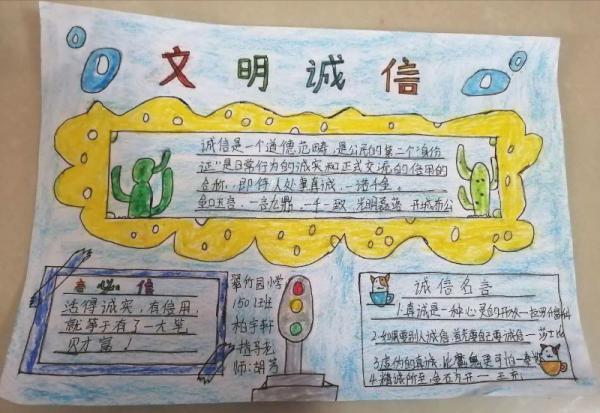 文明诚信
诚信是一个道德范畴,是公民的第二个"身份
证"是日常行为的诚实和正式交流的信用的
合称,即待人处事真诚、一诺千金、
一言九鼎、一千一致、光明磊落、开诚布公
信
活得诚实,有信用,
就等于有了一大笔
财富!
翠竹园小学
1501班
柏宇轩
师:胡
诚信名言
1.真诚是一种心灵的开放—拉罗什富科
2.如果要别人诚信,首先要自己要诚信—莎士比
3.虚伪的真诚,比魔鬼更可怕—泰
4.精诚所至,金石为开—王充